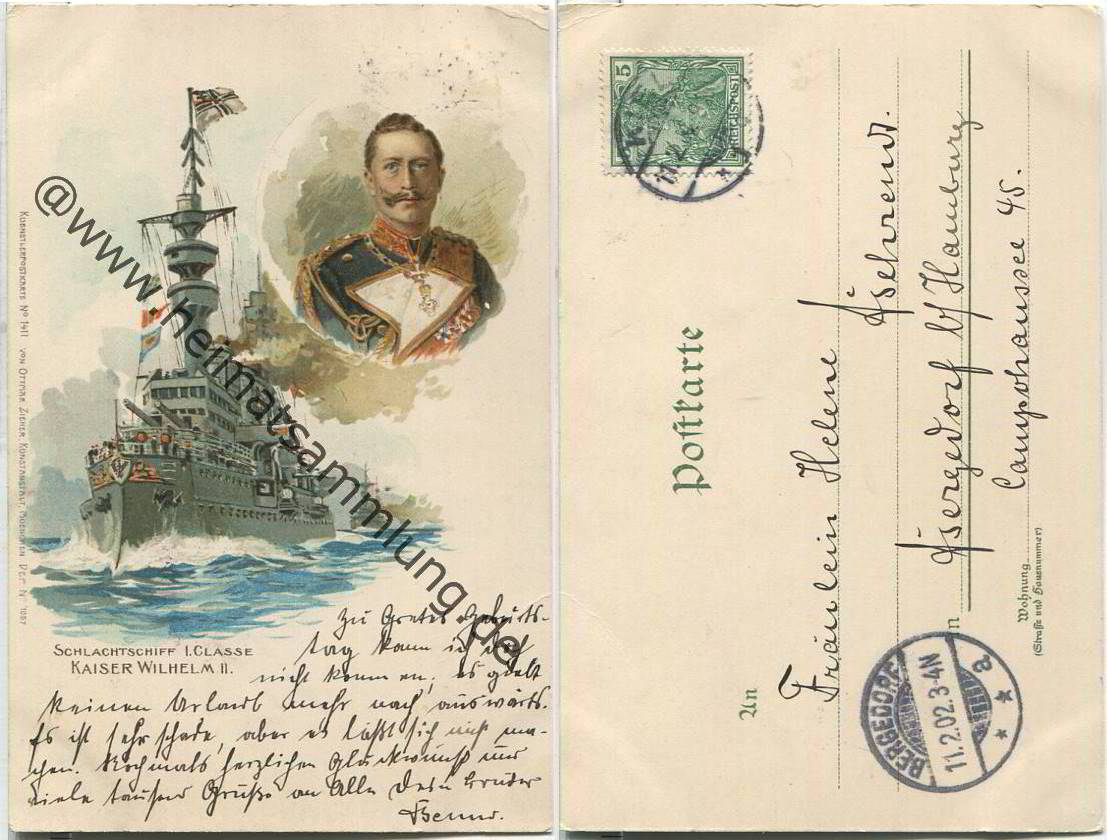 Kuenstlerpostkarte No 1411 von Ottmar Zieher, Kunstanstalt, Muenchen Dep. No 1087
@www.heimatsammlung.de
Schlachtschiff I. Classe
Kaiser Wilhelm II.
Zu Gretes Geburts-
tag kann ich doch
nicht kommen, es giebt
keinen Urlaub mehr nach auswärts.
Es ist sehr schade, aber es läßt sich nicht ma-
chen. Nochmals herzlichen Glückwunsch und
viele tausend Grüße an Alle Dein Bruder
Benno.
5
REICHSPOST
11.2
Postkarte
An
Fräulein Helene
Behrend.
Bergedorf b/Hamburg
Wohnung
(Straße und Hausnummer)
45.
BERGEDORF
11.2.02.3-4N
a.